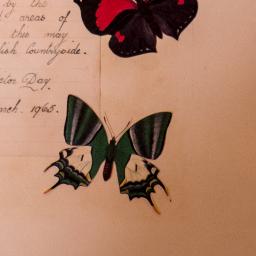 by the
areas of
this may
lish Countryside.
ctor Day
rch. 1965.